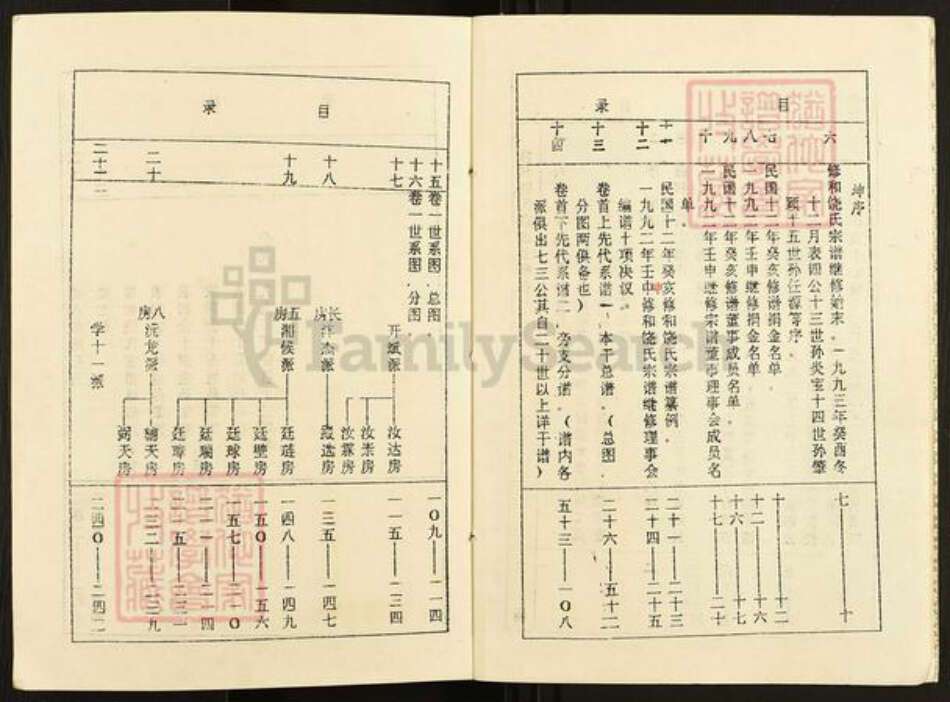 目 录
坤序
六 修和饶氏宗谱继修始末.一九九三年癸酉冬
十二月表四公十三世孙炎室十四世孙肇
颖十五世孙任源等序. 七——十
七 民国十二年癸亥修谱捐金名单. 十——十二
八 一九九二年壬申继修捐金名单. 十二——十六
九 民国十二年癸亥修谱董事成员名单. 十六——十七
十 一九九二年壬申继修宗谱董事理事会成员名
单. 十七——二十
十一 民国十二年癸亥修和饶氏宗谱纂例. 二十一——二十三
十二 一九九二年壬申修和饶氏宗谱继修理事会
编谱十项决议. 二十四——二十五
十三 卷首上先代系谱一.本干总谱.(总图.
分图两俱备也) 二十六——五十二
十四 卷首下先代系谱二.旁支分谱.(谱内各
派俱出七三公其自二十世以上详干谱) 五十三——一0八
目 录
十五 卷一世系图.总图. 一0九——一一四
十六 卷一世系图.分图
十七 开斌派 汝达房 一一五——二三四
汝崇房
汝霖房
十八 长房 派 选房 一三五——一四七
十九 五房 湘候派 廷琏房 一四八——一四九
廷璧房 一五0——一五六
廷球房 一五七——二一0
廷瑞房 二一一——二一四
廷 房 二一五——二三一
二十 八房 龙派 天房 一三二——一三九
弼天房 二四0——二四二
二十一 学十一派
FamilySearch